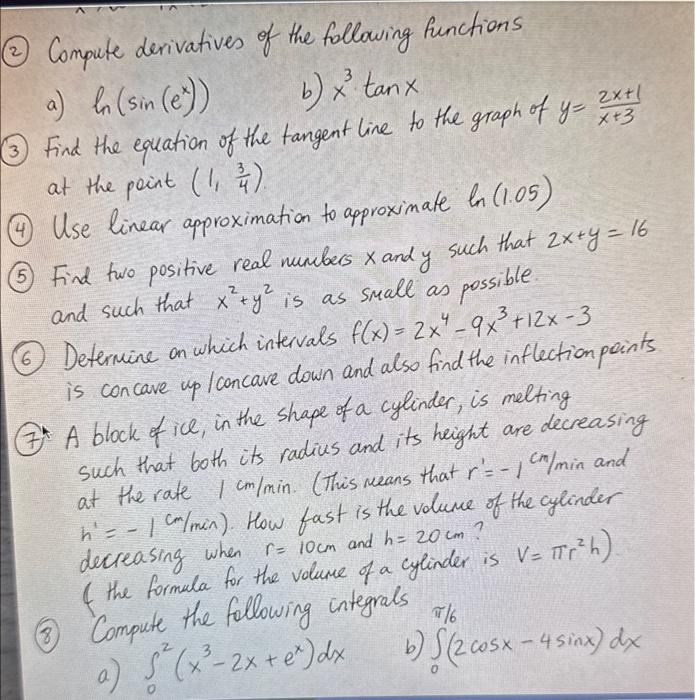 ② Compute derivatives of the following functions
a) ln(sin(eˣ)) b) x³ · tanx
③ Find the equation of the tangent line to the graph of y = (2x+1)/(x+3)
at the point (1, 3/4).
④ Use linear approximation to approximate ln(1.05)
⑤ Find two positive real numbers x and y such that 2x+y = 16
and such that x²+y² is as small as possible.
⑥ Determine on which intervals f(x) = 2x⁴ - 9x³ + 12x - 3
is concave up / concave down and also find the inflection points
⑦ A block of ice, in the shape of a cylinder, is melting
such that both its radius and its height are decreasing
at the rate 1 cm/min. (This means that r' = -1 cm/min and
h' = -1 cm/min). How fast is the volume of the cylinder
decreasing when r = 10cm and h = 20cm?
( the formula for the volume of a cylinder is V = πr²h)
⑧ Compute the following integrals
a) ∫₀² (x³ - 2x + eˣ) dx b) ∫₀^(π/6) (2cosx - 4sinx) dx